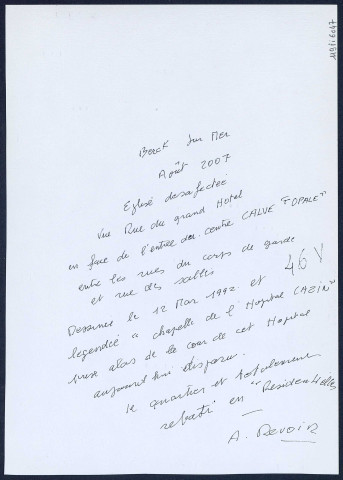 Berck sur Mer
Août 2007
Eglise desafectée
Vue Rue du grand Hotel
en face de l'entrée du centre CALVE "OPALE"
entre les rues du corps de garde
et rue des sables
46 V
Dessinée le 12 Mai 1992 et
legendée "chapelle de l'Hopital CAZIN"
prise alors de la cour de cet Hopital
aujourd'hui disparu.
le quartier est totalement
rebati en "Residentielles"
A. Revoir